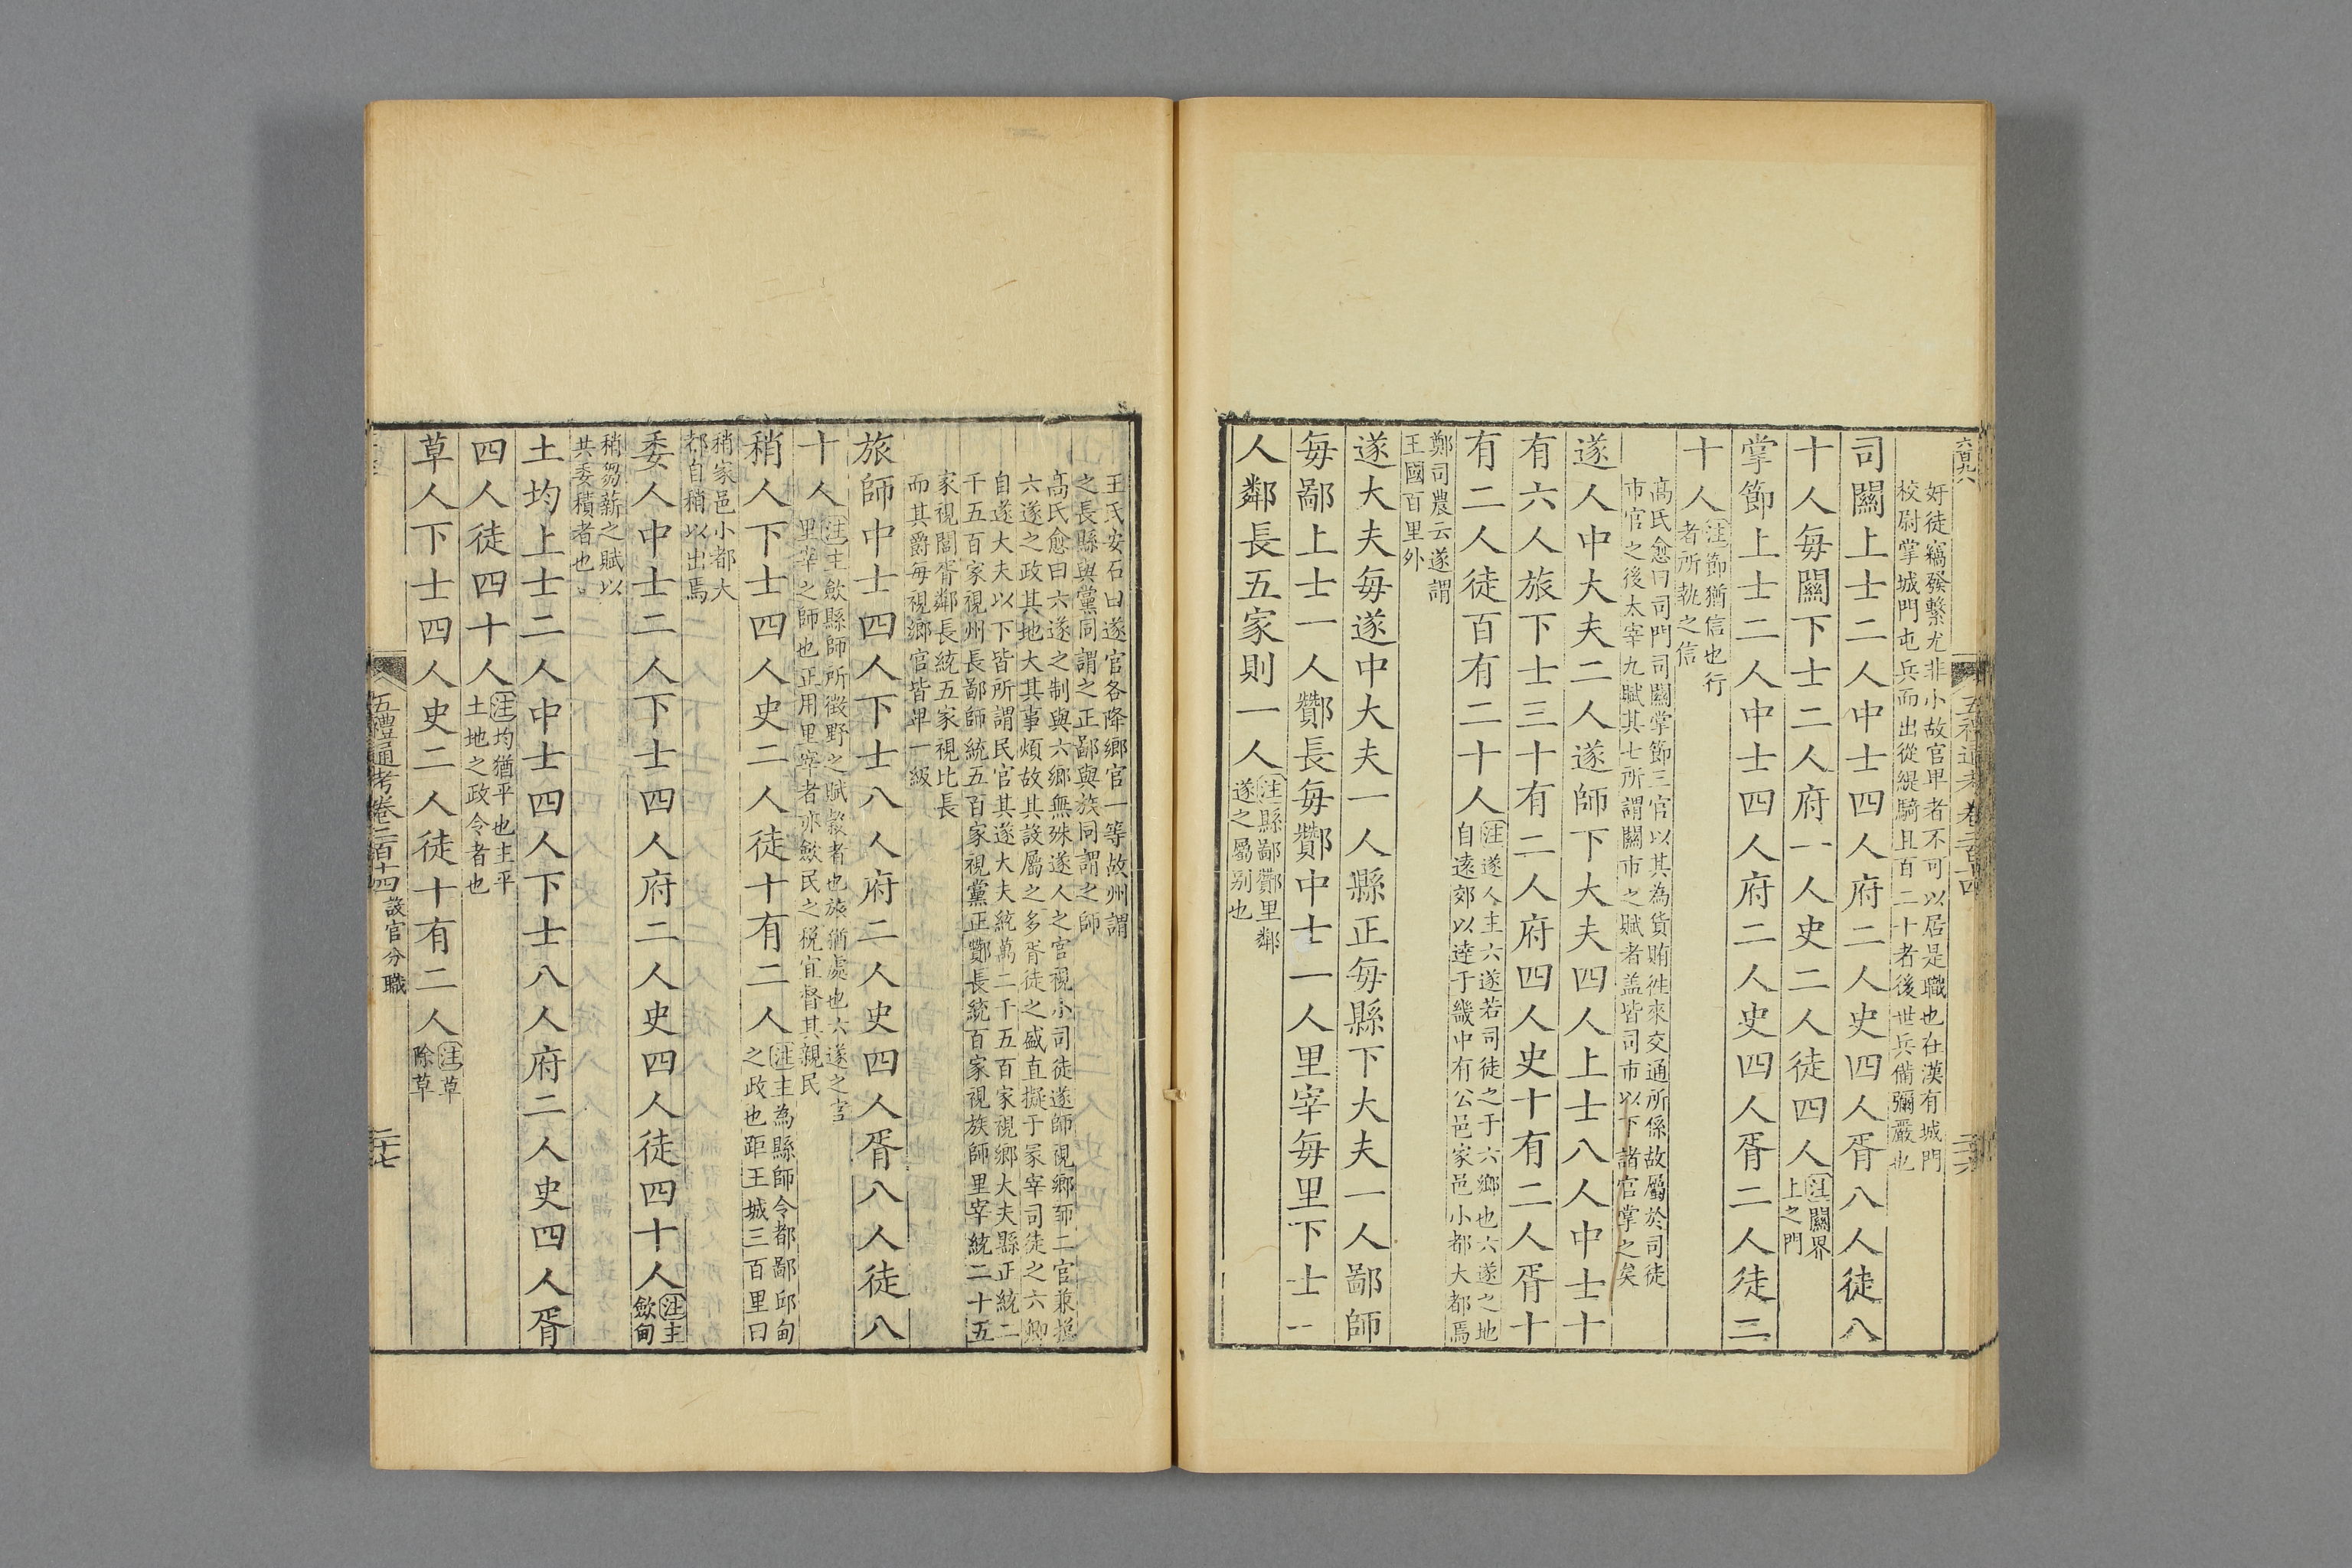 六百九八
五禮通考卷二百十四
二十六
奸徒竊發繫尤非小故官卑者不可以居是職也在漢有城門
校尉掌城門屯兵而出從緹騎且百二十者後世兵備彌嚴也
司關上士二人中士四人府二人史四人胥八人徒八
十人每關下士二人府一人史二人徒四人注關界
上之門
掌節上士二人中士四人府二人史四人胥二人徒二
十人注節猶信也行
者所執之信
高氏愈曰司門司關掌節三官以其為貨賄徃來交通所係故屬於司徒
市官之後太宰九賦其七所謂關市之賦者盖皆司市以下諸官掌之矣
遂人中大夫二人遂師下大夫四人上士八人中士十
有六人旅下士三十有二人府四人史十有二人胥十
有二人徒百有二十人注遂人主六遂若司徒之于六鄉也六遂之地
自遠郊以達于畿中有公邑家邑小都大都焉
鄭司農云遂謂
王國百里外
遂大夫每遂中大夫一人縣正每縣下大夫一人鄙師
每鄙上士一人酇長每酇中士一人里宰每里下士一
人鄰長五家則一人注縣鄙酇里鄰
遂之屬别也
王氏安石曰遂官各降鄉官一等故州謂
之長縣與黨同謂之正鄙與族同謂之師
高氏愈曰六遂之制與六鄉無殊遂人之官視小司徒遂師視鄉師二官兼掌
六遂之政其地大其事煩故其設屬之多胥徒之盛直擬于冢宰司徒之六卿
自遂大夫以下皆所謂民官其遂大夫統萬二千五百家視鄉大夫縣正統二
千五百家視州長鄙師統五百家視黨正酇長統百家視族師里宰統二十五
家視閭胥鄰長統五家視比長
而其爵每視鄉官皆卑一級
旅師中士四人下士八人府二人史四人胥八人徒八
十人注主歛縣師所徵野之賦穀者也旅猶處也六遂之官
里宰之師也正用里宰者亦歛民之稅宜督其親民
稍人下士四人史二人徒十有二人注主為縣師令都鄙邱甸
之政也距王城三百里曰
稍家邑小都大
都自稍以出焉
委人中士二人下士四人府二人史四人徒四十人注主
歛甸
稍芻薪之賦以
共委積者也
土均上士二人中士四人下士八人府二人史四人胥
四人徒四十人注均猶平也主平
土地之政令者也
草人下士四人史二人徒十有二人注草
除草
五禮通考卷二百十四
設官分職
二十七